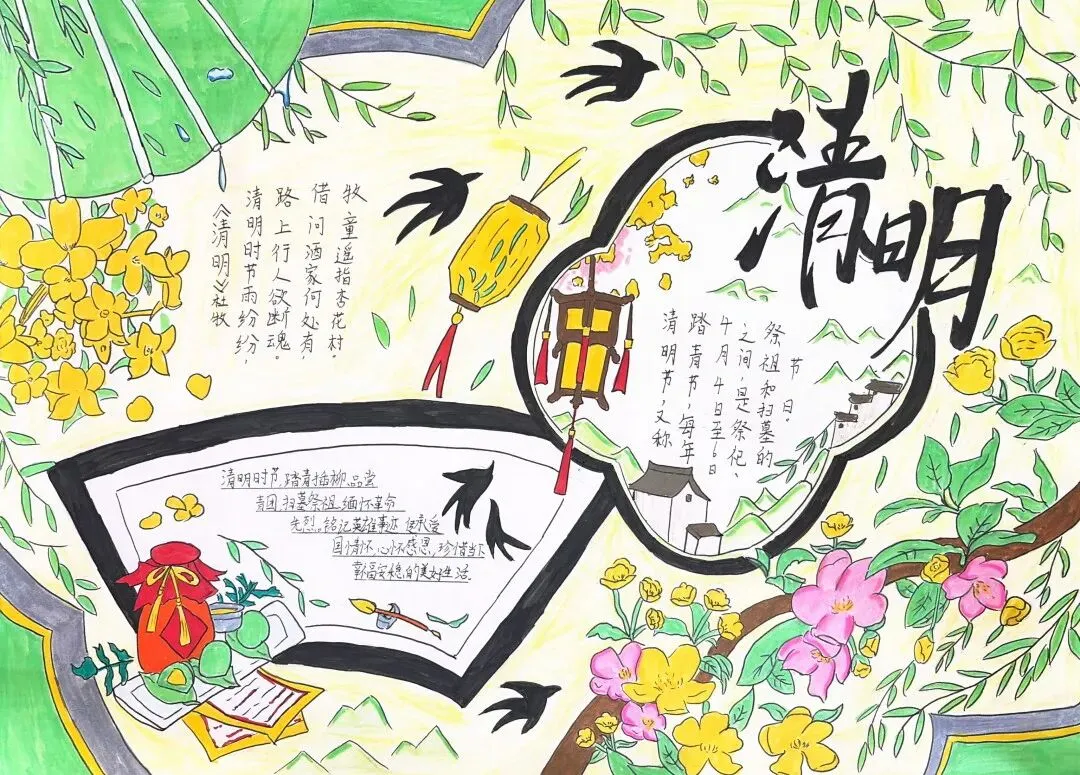 清明
《清明》社牧
清明时节雨纷纷，
路上行人欲断魂。
借问酒家何处有，
牧童遥指杏花村。
清明节，又称
踏青节，每年
4月4日至6日
之间，是祭祀、
祭祖和扫墓的
节日。
清明时节，踏青插柳，品尝
青团，扫墓祭祖，缅怀革命
先烈。铭记英雄事迹，传承爱
国情怀，心怀感恩，珍惜当下
幸福安稳的美好生活。